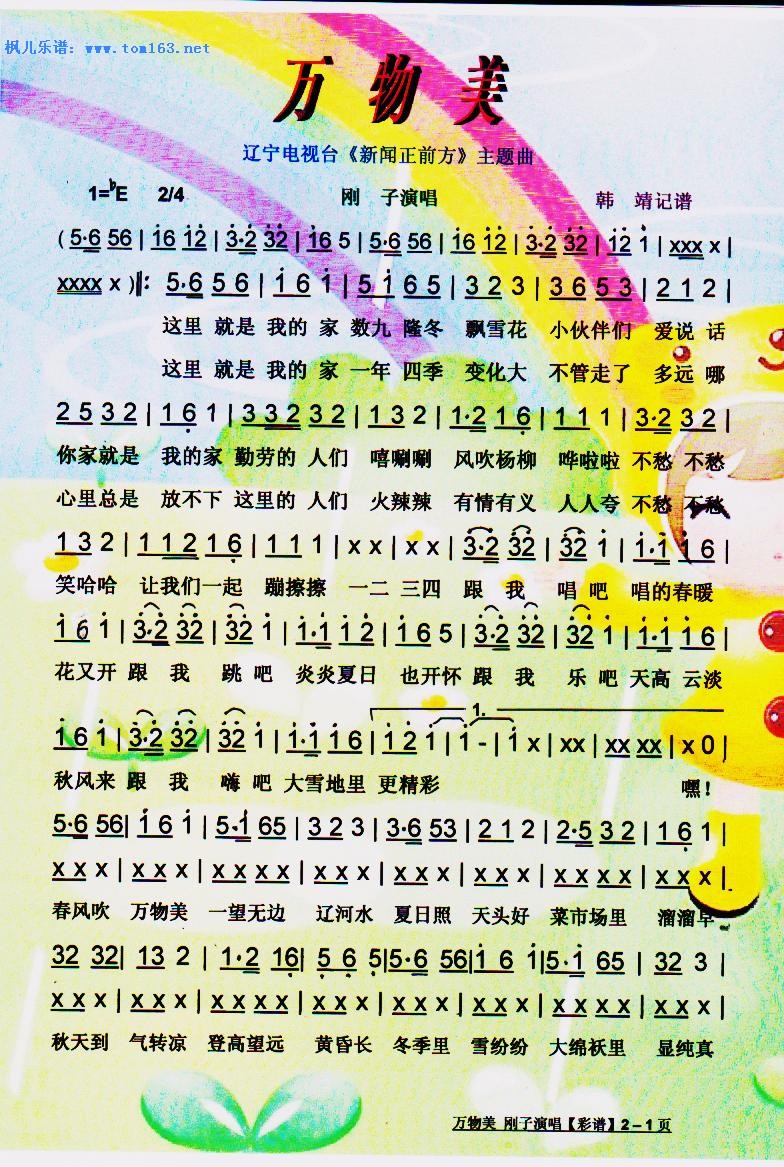 枫儿乐谱：www.tom163.net
万物美
辽宁电视台《新闻正前方》主题曲
1=♭E 2/4 刚 子演唱 韩 靖记谱
( 5·6 56 | i6 i2 | 3·2 32 | i6 5 | 5·6 56 | i6 i2 | 3·2 32 | i2 i | xxx x |
xxxx x ) ‖: 5·6 5 6 | i 6 i | 5 i 6 5 | 3 2 3 | 3 6 5 3 | 2 1 2 |
这里 就是 我的 家 数九 隆冬 飘雪花 小伙伴们 爱说 话
这里 就是 我的 家 一年 四季 变化大 不管走了 多远 哪
2 5 3 2 | 1 6 1 | 3 3 2 3 2 | 1 3 2 | 1·2 1 6 | 1 1 1 | 3·2 3 2 |
你家就是 我的家 勤劳的 人们 嘻唰唰 风吹杨柳 哗啦啦 不愁 不愁
心里总是 放不下 这里的 人们 火辣辣 有情有义 人人夸 不愁 不愁
1 3 2 | 1 1 2 1 6 | 1 1 1 | x x | x x | 3·2 32 | 32 i | i·i i 6 |
笑哈哈 让我们一起 蹦擦擦 一二 三四 跟 我 唱 吧 唱的春暖
i 6 i | 3·2 32 | 32 i | i·i i 2 | i 6 5 | 3·2 32 | 32 i | i·i i 6 |
花又开 跟 我 跳 吧 炎炎夏日 也开怀 跟 我 乐 吧 天高 云淡
1.
i 6 i | 3·2 32 | 32 i | i·i i 6 | i 2 i | i - | i x | xx | xx xx | x 0 |
秋风来 跟 我 嗨 吧 大雪地里 更精彩 嘿！
5·6 56 | i 6 i | 5·i 65 | 3 2 3 | 3·6 53 | 2 1 2 | 2·5 3 2 | 1 6 1 |
x x x | x x x | x x x x | x x x | x x x | x x x | x x x x | x x x |
春风吹 万物美 一望无边 辽河水 夏日照 天头好 菜市场里 溜溜早
32 32 | 13 2 | 1·2 16 | 5 6 5 | 5·6 56 | i 6 i | 5·i 65 | 32 3 |
x x x | x x x | x x x x | x x x | x x x | x x x | x x x x | x x x |
秋天到 气转凉 登高望远 黄昏长 冬季里 雪纷纷 大绵袄里 显纯真
万物美 刚子演唱【彩谱】2－1页